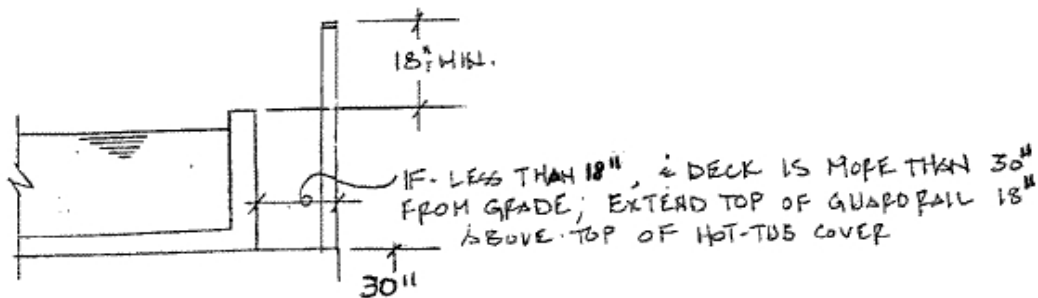 18" MIN.
IF LESS THAN 18", & DECK IS MORE THAN 30"
FROM GRADE; EXTEND TOP OF GUARDRAIL 18"
ABOVE TOP OF HOT-TUB COVER
30"